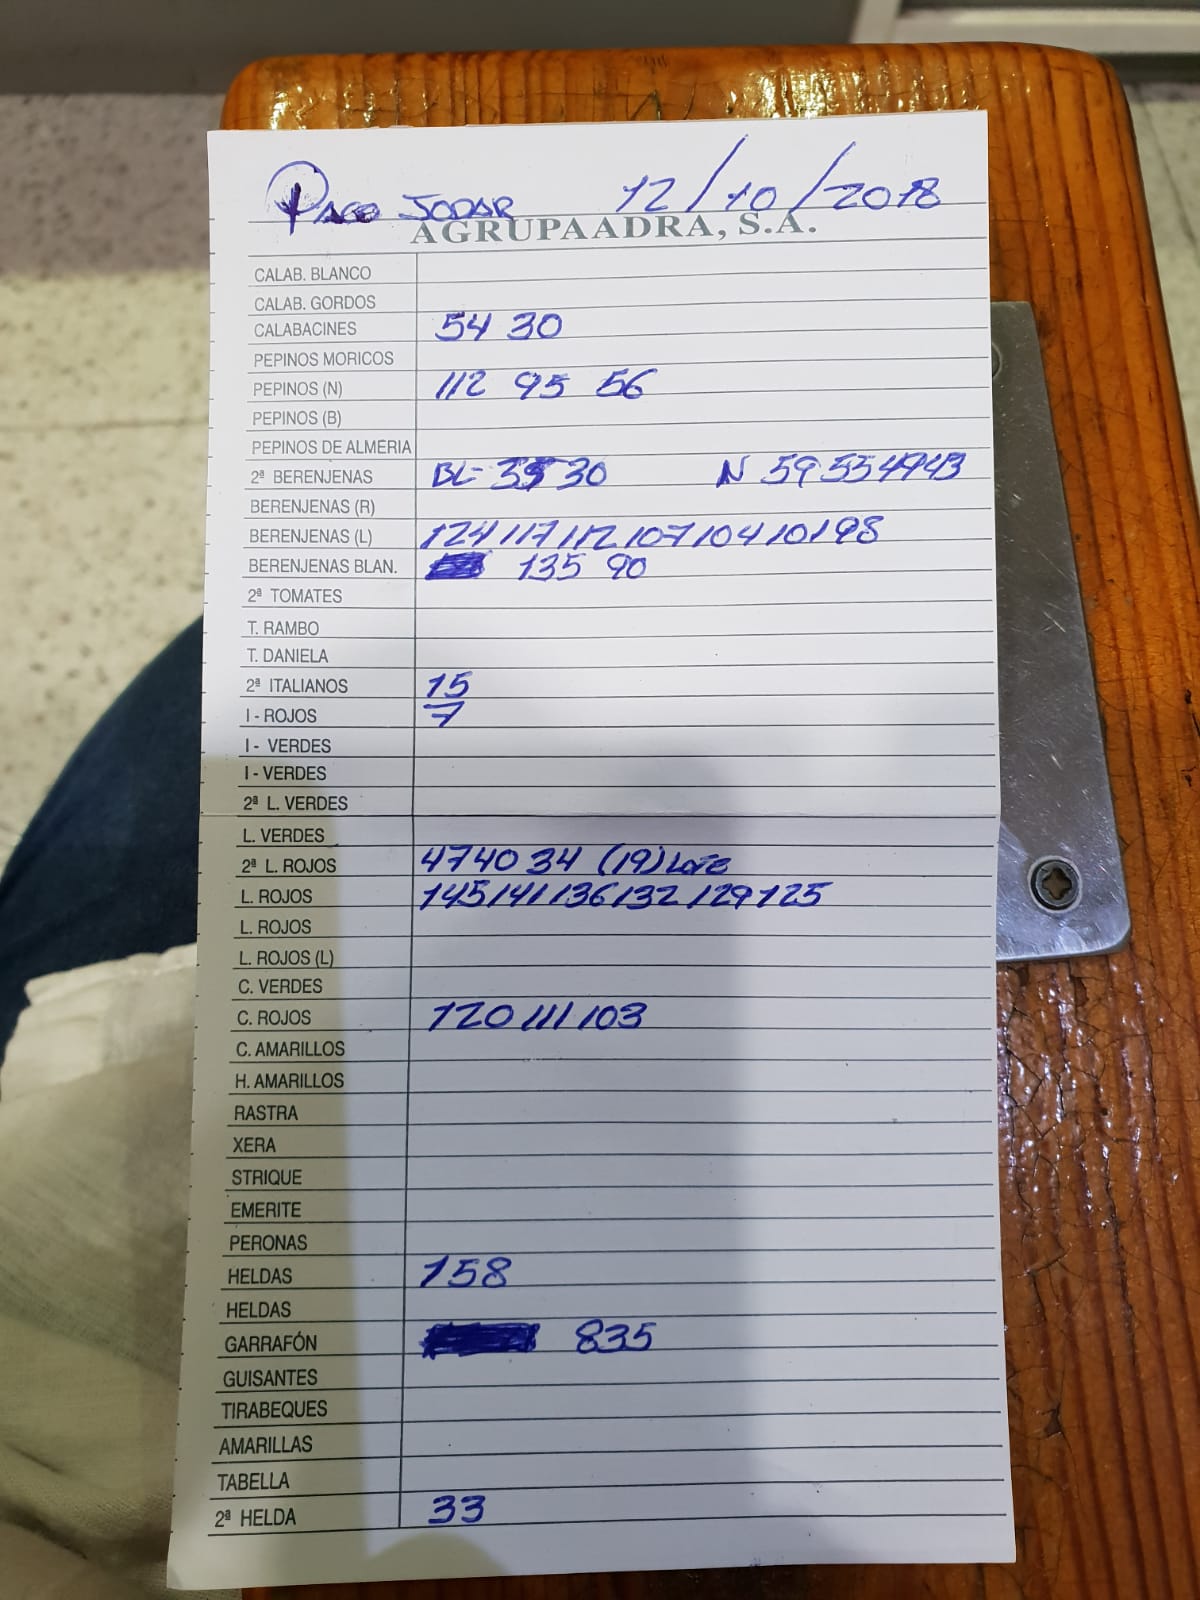 PACO JODAR 12/10/2018
AGRUPAADRA, S.A.
CALAB. BLANCO
CALAB. GORDOS
CALABACINES 54 30
PEPINOS MORICOS
PEPINOS (N) 112 95 56
PEPINOS (B)
PEPINOS DE ALMERIA
2ª BERENJENAS BL- 35 30 N 59 55 49 43
BERENJENAS (R)
BERENJENAS (L) 124 117 112 107 104 101 98
BERENJENAS BLAN. 135 90
2ª TOMATES
T. RAMBO
T. DANIELA
2ª ITALIANOS 15
I - ROJOS 7
I - VERDES
I - VERDES
2ª L. VERDES
L. VERDES
2ª L. ROJOS 47 40 34 (19)
L. ROJOS 145 141 136 132 129 125
L. ROJOS
L. ROJOS (L)
C. VERDES
C. ROJOS 120 111 103
C. AMARILLOS
H. AMARILLOS
RASTRA
XERA
STRIQUE
EMERITE
PERONAS
HELDAS 158
HELDAS
GARRAFÓN 835
GUISANTES
TIRABEQUES
AMARILLAS
TABELLA
2ª HELDA 33